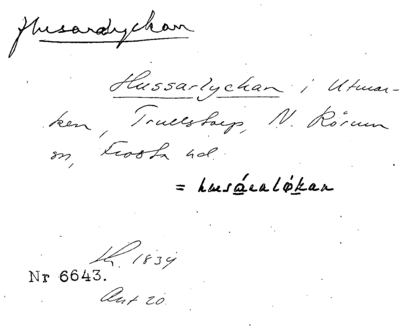 Husarlyckan
Hussarlyckan i Utmar-
ken, Trulstorp, N. Rörum
sn, Frosta hd.
= husáralókan
Lk. 1834
Nr 6643.
Ant 20